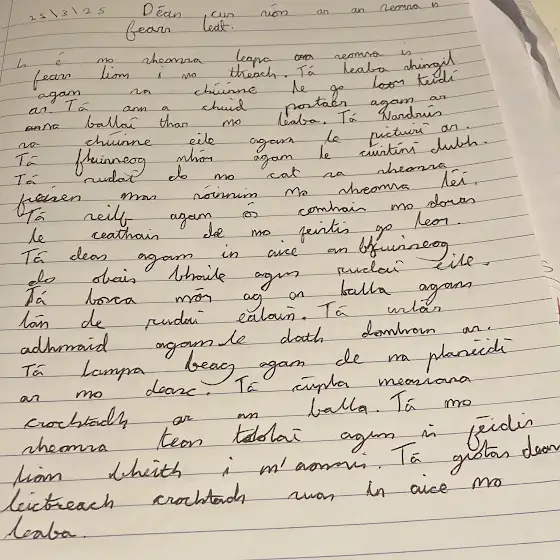 25/3/25 Déan cur síos ar an seomra is
fearr leat.
Is é mo sheomra leapa an seomra is
fearr liom i mo theach. Tá leaba shingil
agam sa chúinne le go leor teidí
ar. Tá ann a chuid portaer agam ar
anna ballaí thar mo leaba. Tá Vardrús
sa chúinne eile agam le pictiúrí ar.
Tá fhuinneog mhór agam le cuirtíní dubh.
Tá rudaí do mo cat sa sheomra
freisen mar roinnim mo sheomra léi.
Tá seilf agam ós comhair mo doras
le ceathair de mo peirtis go leor.
Tá deas agam in aice an bfuinneog
do obair bhaile agus rudaí eile.
Tá bosca mór ag an balla agam
lán de rudaí ealaín. Tá urlár
adhmaid agam le dath domhain ar.
Tá lampa beag agam de na planéidí
ar mo deasc. Tá cúpla measrana
crochtadh ar an balla. Tá mo
sheomra teas agus is féidir
liom bheith i m'aonair. Tá giotar dearg
leictreach crochtadh suas in aice mo
leaba.